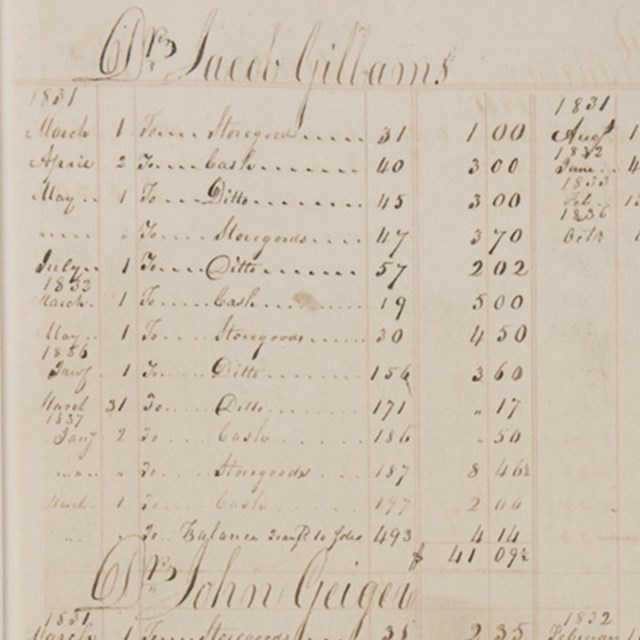 Dr. Jacob Gilliams
1831
March 1 To Storegoods 31 1 00
April 2 To Cash 40 3 00
May 1 To Ditto 45 3 00
" " Storegoods 47 3 70
July 1 To Ditto 57 2 02
1833
March 1 To Cash 19 5 00
May 1 To Storegoods 30 4 50
1836
1 To Ditto 156 3 60
March 31 To Ditto 171 " 17
1837
Jany 2 To Cash 186 " 50
" " To Storegoods 187 8 46½
1 To Cash 197 2 00
" " To Balance to folio 493 4 14
$ 41 09½
1831
Augt 1
1832
June 4
1836
Octr
Dr. John Geiger
1831
March 1 To Storegoods 2 35
1832